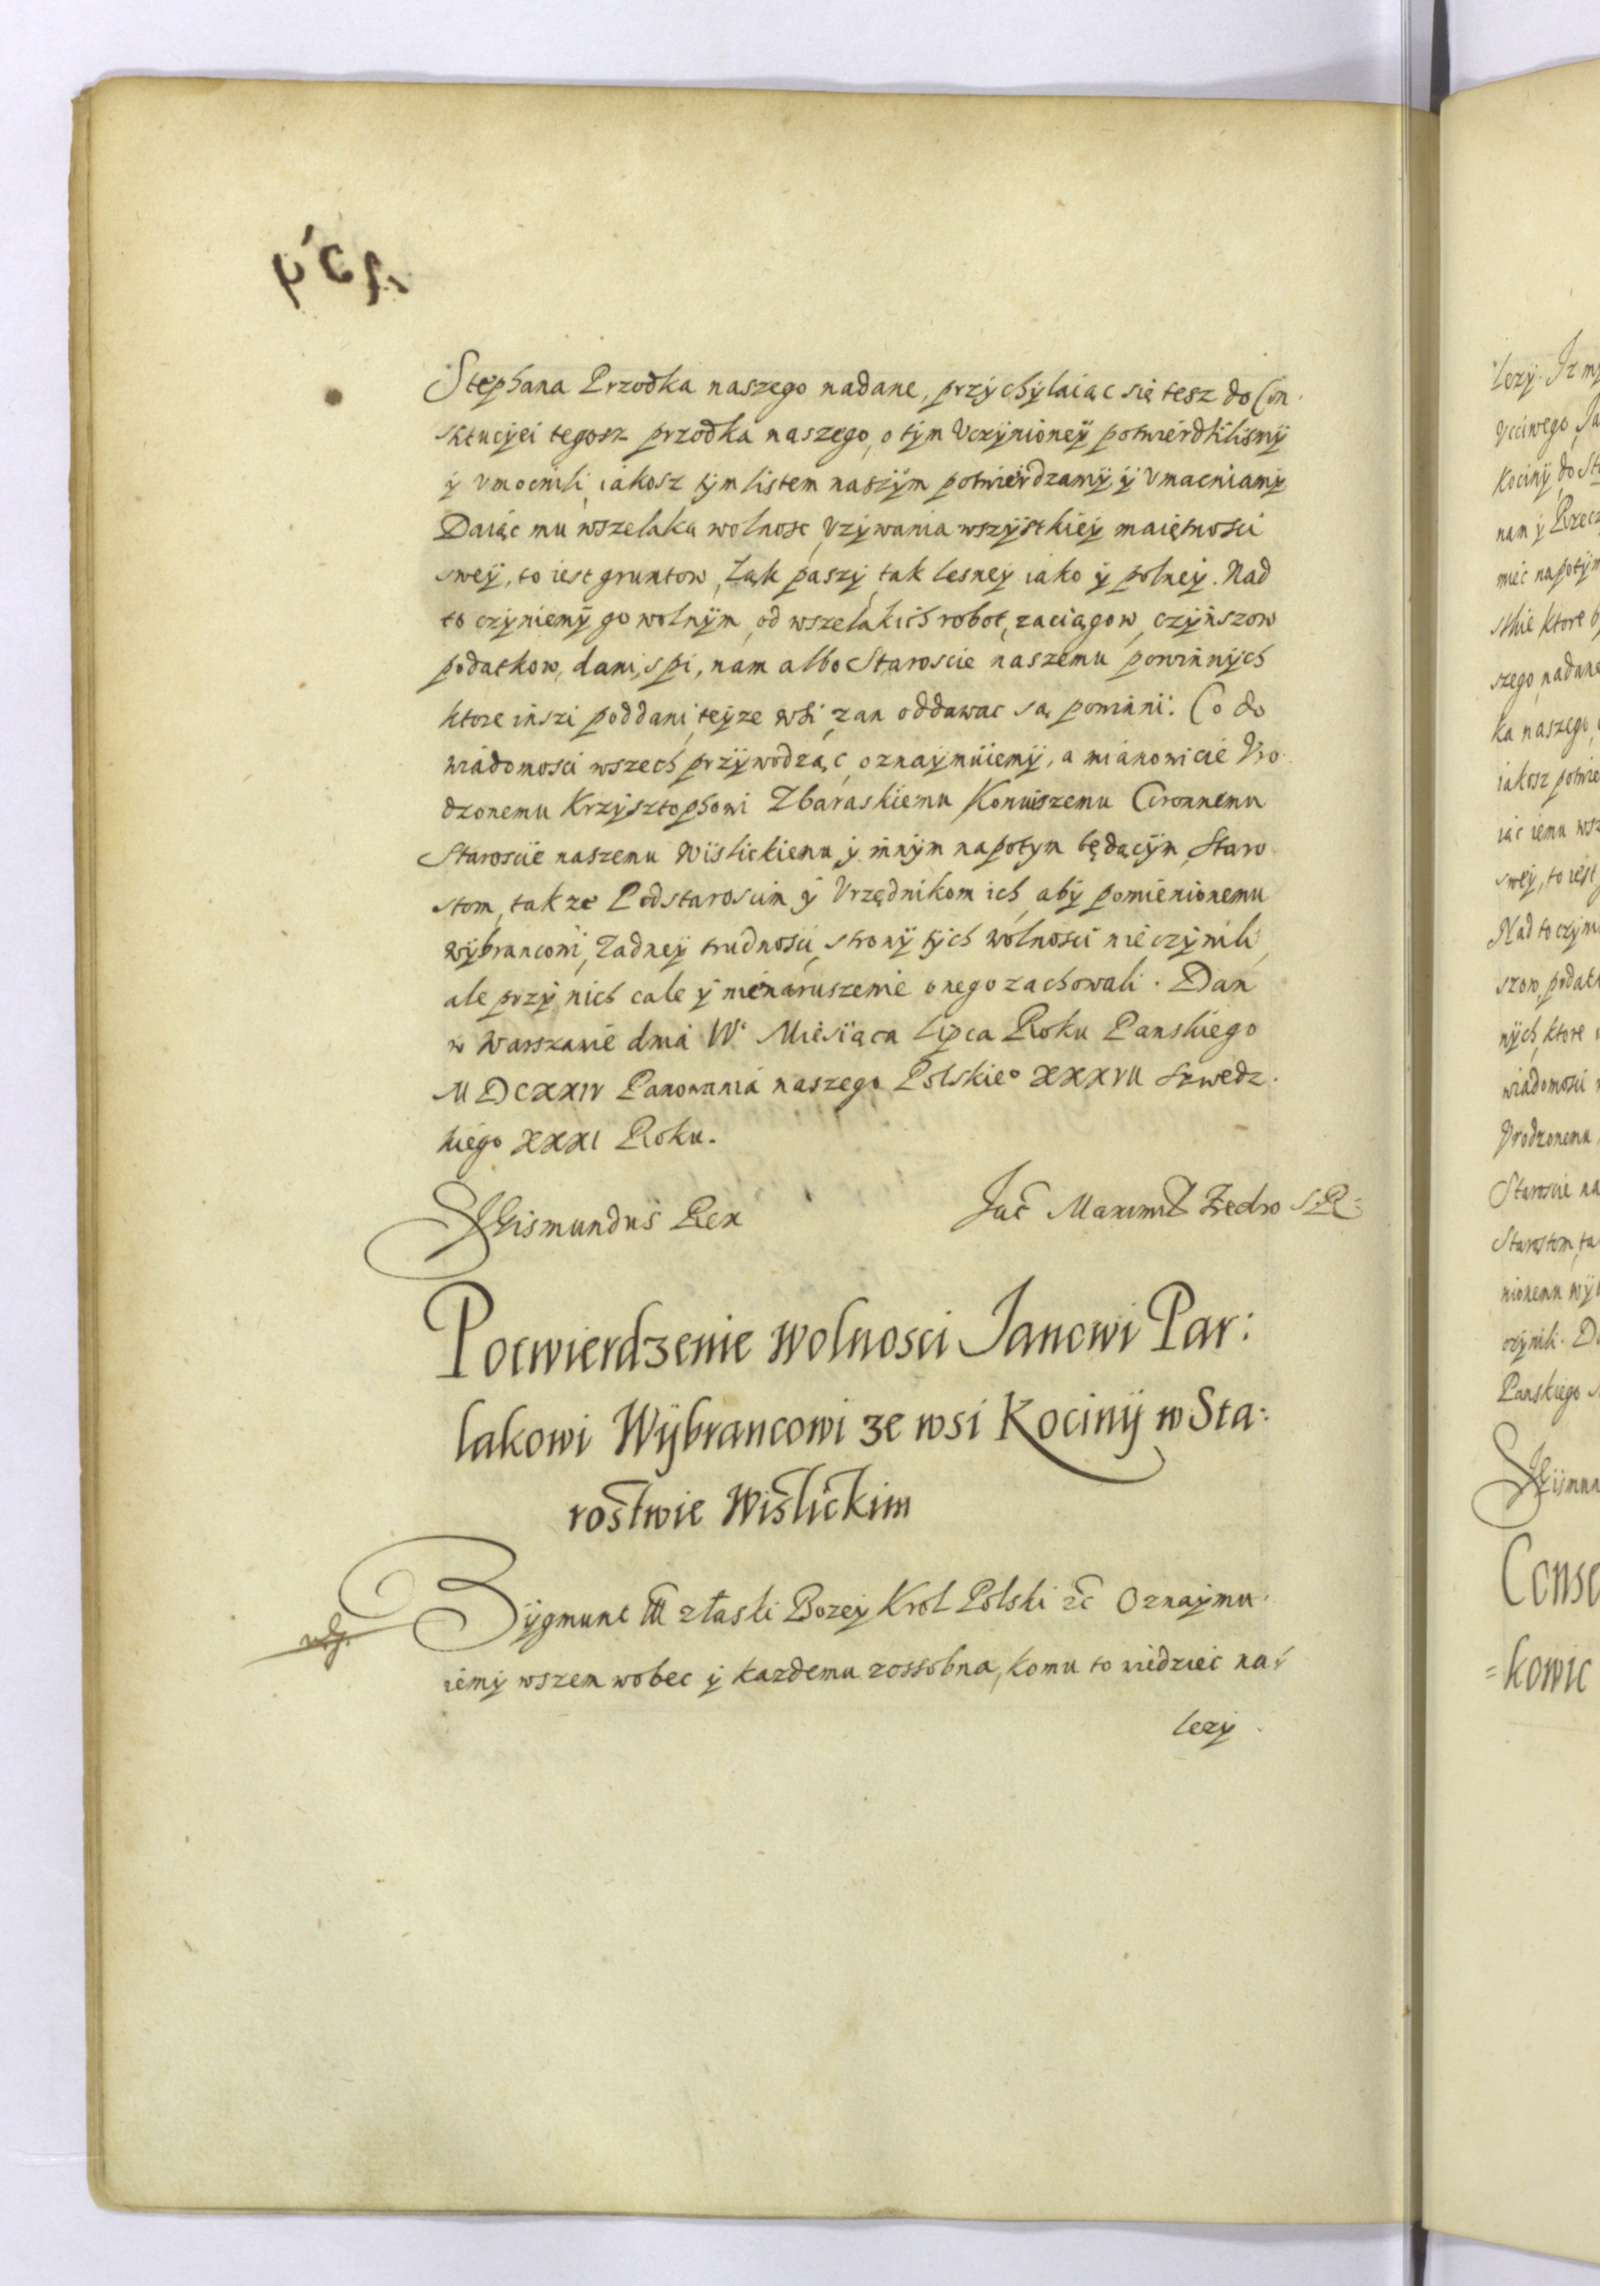 Stephana Przodka naszego nadane, przychylaiąc się tesz do Con
stitucyei tegosz przodka naszego, o tym Vczynioney potwierdziliśmy
ÿ Vmocnili, iakosz tym listem naszym potwierdzamy ÿ Vmacniamy
Daiąc mu wszelaką wolnosc Vzywania wszystkiey maiętnosci
swey, to iest gruntow, Łąk paszy, tak lesney iako ÿ polney. Nad
to czyniemy go wolnym od wszelakich robot, zaciągow, czynszow
podatkow, dani, spi, nam albo Staroscie naszemu powinnych
ktore inszi poddani teyze wsi, zan oddawac są powinni. Co do
wiadomosci wszech przywodząc oznaymuiemy, a mianowicie Vro
dzonemu Krzysztophowi Zbaraskiemu Koniuszemu Coronnemu
Staroscie naszemu Wislickiemu ÿ innym napotym będącym Staro
stom, takze Podstaroscim ÿ Vrzędnikom ich, aby pomienionemu
wybrancowi, Zadney trudnosci, strony tych wolnosci nie czynili,
ale przy nich cale ÿ nienaruszenie onego zachowali. Dan
w Warszawie dnia IV Miesiąca Lipca Roku Panskiego
MDCXXIV Panowania naszego Polskieº XXXVII Szwedz
kiego XXXI Roku.
Sigismundus Rex
Jac Maximil Fredro
Potwierdzenie wolnosci Janowi Par:
lakowi Wÿbrancowi ze wsi Kocinÿ w Sta:
rostwie Wislickim
Zygmunt III z łaski Bozey Krol Polski ꝛc Oznaymu
iemy wszem wobec ÿ kazdemu zossobna, komu to wiedziec na
lezy
lezy. Iz my
Vcciwego Ja
Kociny do Sta
nam ÿ Rzecz
miec napotym
szego nadane
ka naszego
iakosz potwie
iąc iemu wsz
swey, to iest
Nad to czyni
szow, podat
nych, ktore
wiadomosci
Vrodzonemu
Staroscie na
Starostom, ta
nionemu wyb
czynili. Da
Panskiego
Conse
=kowic